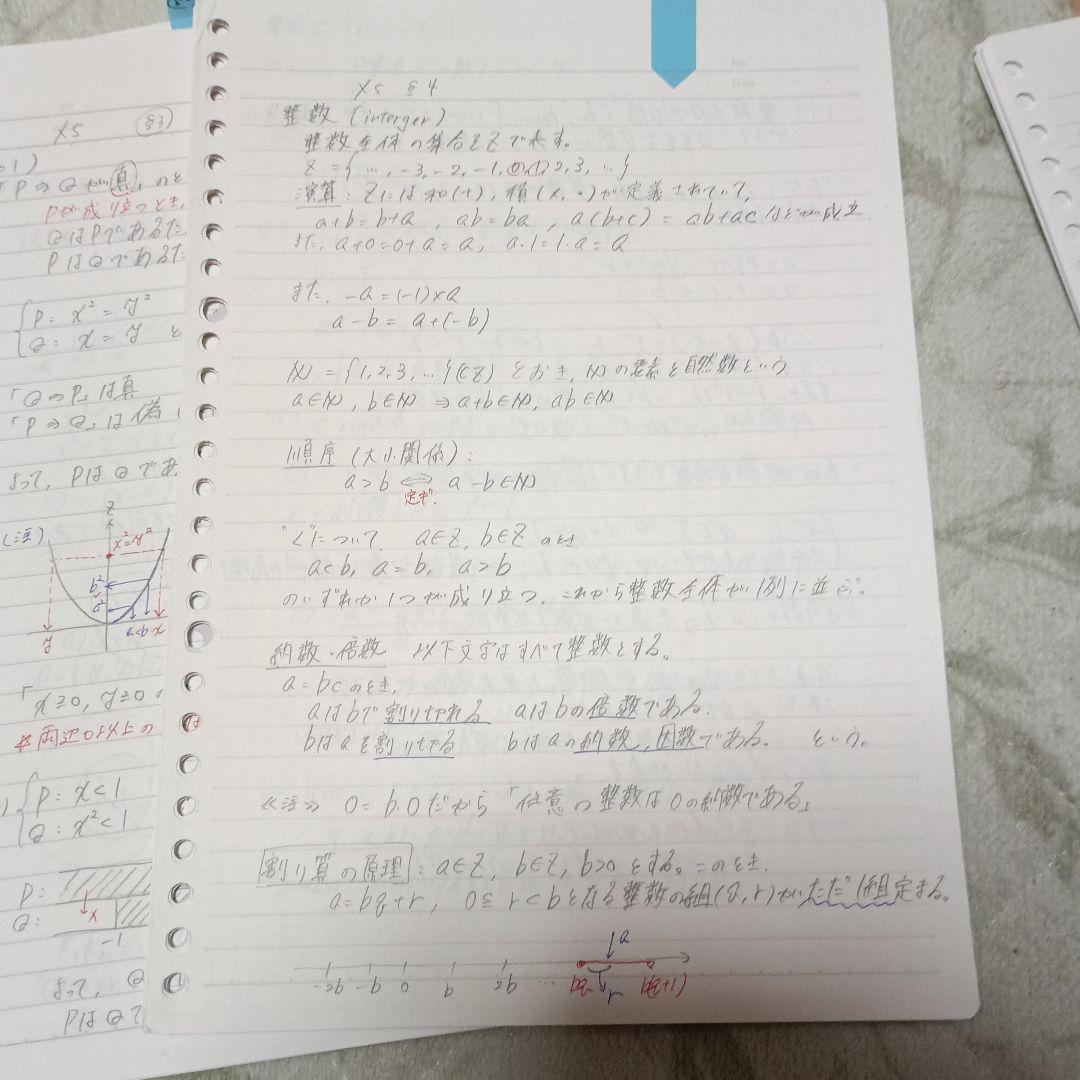 XS §3
「P⇒Qが真」のと
Pが成り立つとき,
QはPであるた
PはQであるた
P: x² = y²
Q: x = y と
「Q⇒P」は真
「P⇒Q」は偽
よって, PはQであ
(注)
z
x²=y²
b²
a²
y
a<b x
「x≧0, y≧0
*両辺0以上の
は
P: x<1
Q: x²<1
P:
Q:
x
-1
よって, Q
PはQで
No.
Date
XS §4
整数 (interger)
整数全体の集合をZで表す。
Z = {…, -3, -2, -1, 0, 1, 2, 3, …}
演算: Zには和(+), 積(×, ・)が定義されていて,
a+b=b+a, ab=ba, a(b+c) = ab+ac などが成立
また, a+0=0+a=a, a・1=1・a=a
また, -a=(-1)×a
a-b = a+(-b)
N = {1, 2, 3, …}(⊂Z) とおき, Nの要素を自然数という
a∈N, b∈N ⇒ a+b∈N, ab∈N
順序 (大小関係):
a>b ⇔ a-b∈N
定義
"<"について, a∈Z, b∈Z のとき
a<b, a=b, a>b
のいずれか1つが成り立つ. これから整数全体が1列に並ぶ.
約数・倍数 以下文字はすべて整数とする。
a=bcのとき,
aはbで割り切れる aはbの倍数である.
bはaを割り切る bはaの約数, 因数である. という。
≪注≫ 0=b・0だから「任意の整数は0の約数である」
割り算の原理: a∈Z, b∈Z, b>0 とする。このとき,
a=bq+r, 0≦r<bとなる整数の組(q, r)がただ1組定まる。
a
-2b -b 0 b 2b … bq r b(q+1)